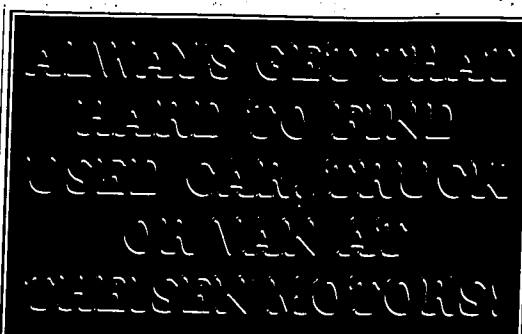 ALWAYS GET THAT
HARD TO FIND
USED CAR, TRUCK
OR VAN AT
THEISEN MOTORS!